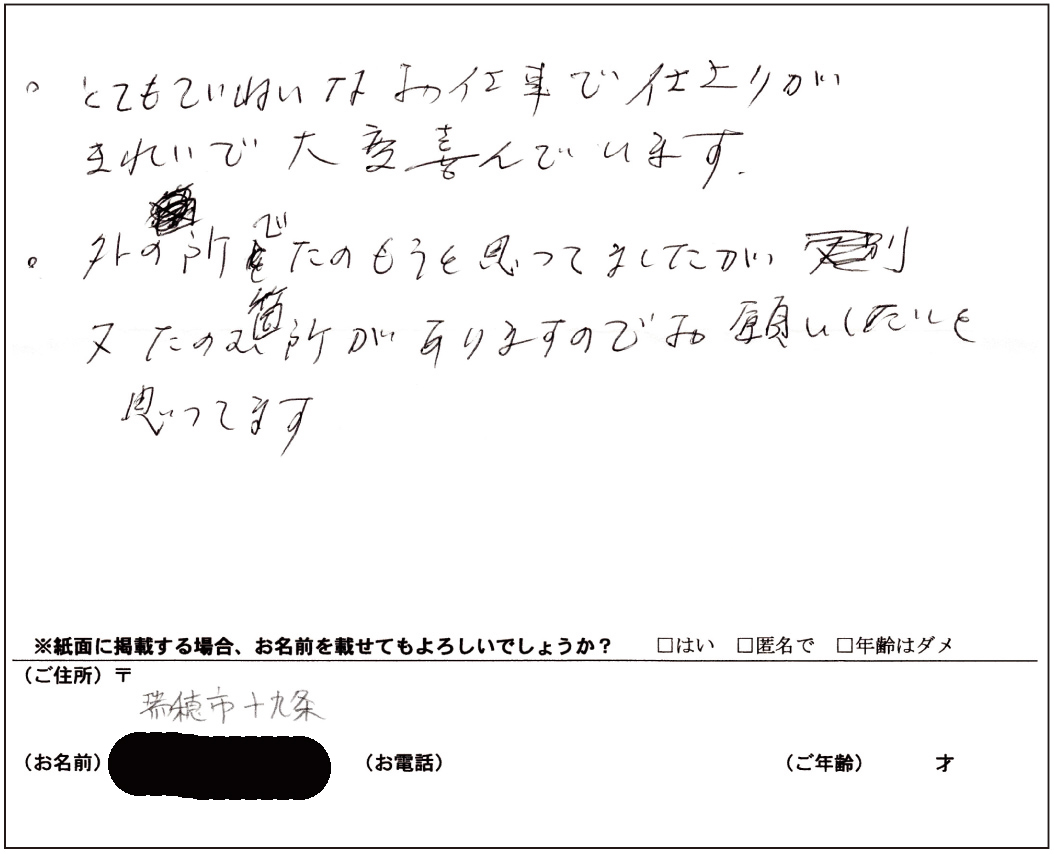 。とてもていねいなお仕事で仕上りが
きれいで大変喜んでいます.
。外の所でたのもうと思ってましたが
又たのむ箇所がありますのでお願いしたいと
思ってます
※紙面に掲載する場合、お名前を載せてもよろしいでしょうか？ □はい □匿名で □年齢はダメ
(ご住所)〒
瑞穂市十九条
(お名前) (お電話) (ご年齢) 才